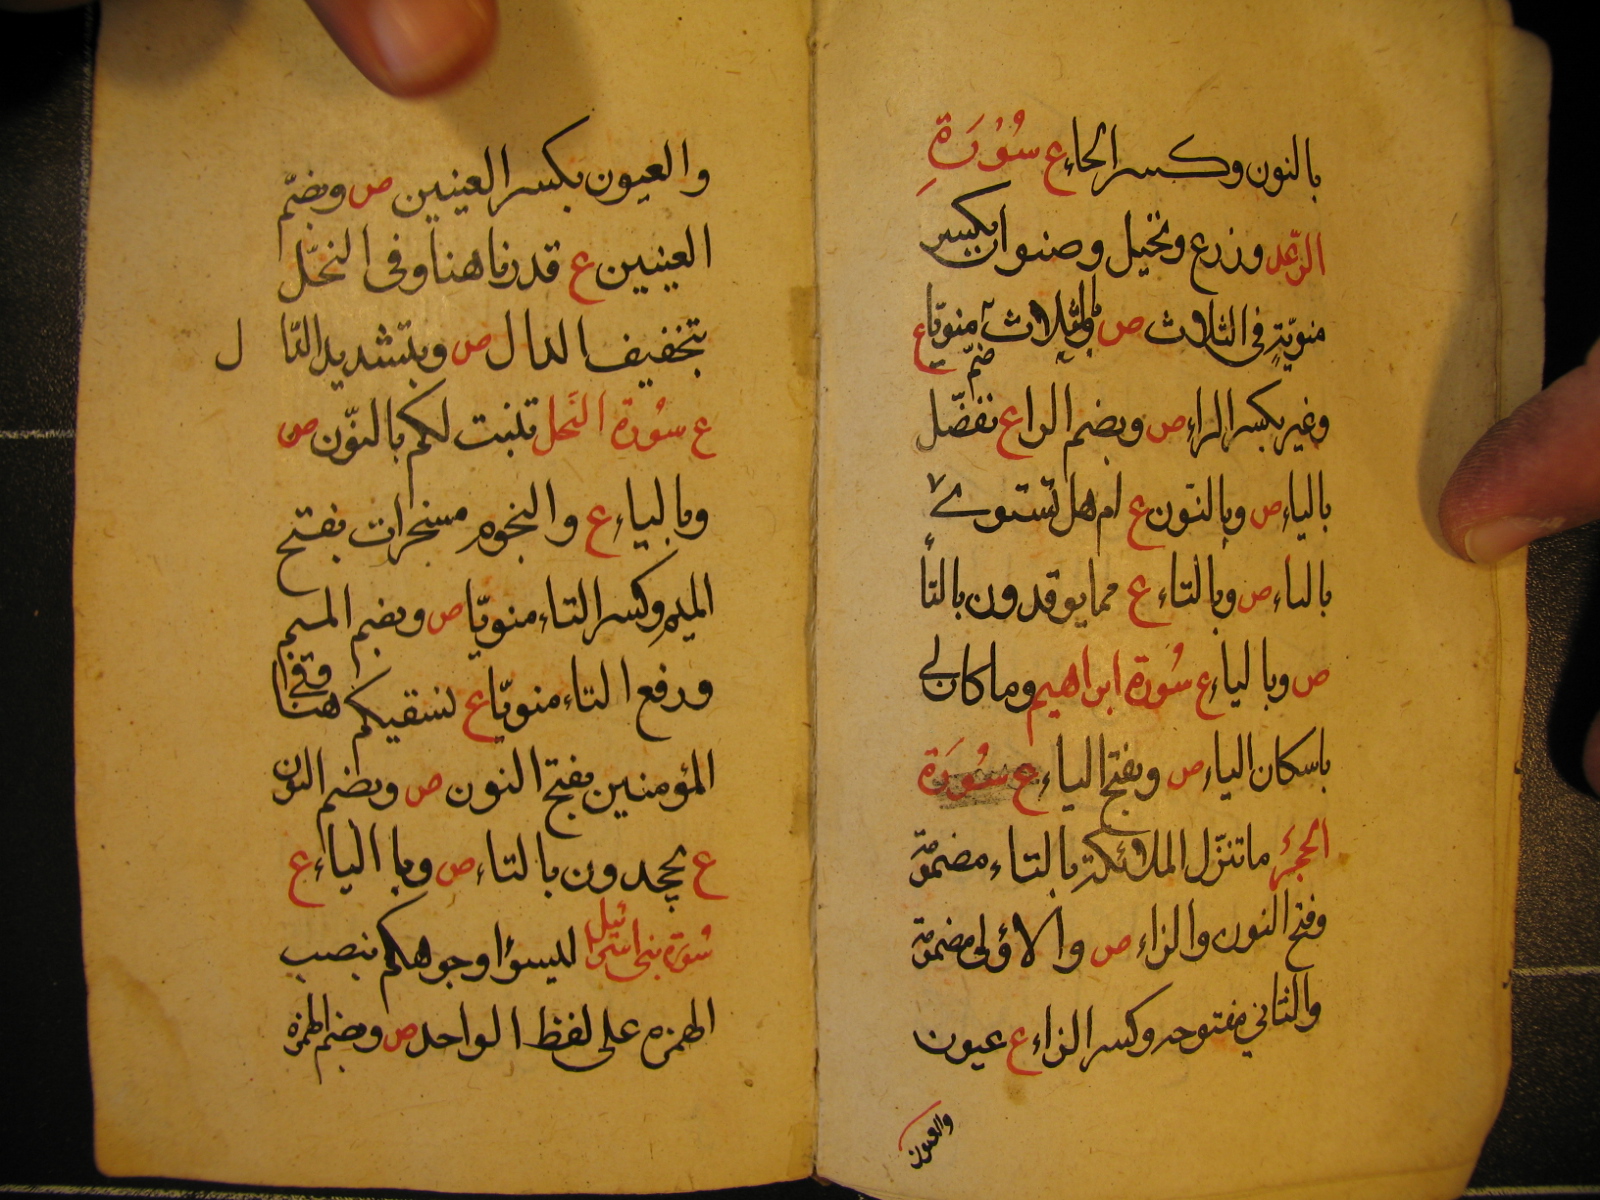 بالنون وكسر الحاء ع سُوْرَةِ
الرّعد وزرع ونخيل وصنوان بكسر
منويّةٍ في الثلاث ص والثلاث منويّا ع
ضمّ
وغير بكسر الراء ص وبضم الراع نفضّل
بالياء ص وبالنون ع ام هل تستوى
بالياء ص وبالتاء ع مما يوقدون بالتاء
ص وبالياء ع سُورة ابراهيم وما كان لي
باسكان الياء ص وبفتح الياء ع سُورَة
الحجر ما تنزّل الملائكة بالتاء مضمومة
وفتح النون والزاء ص والاولى مضمومة
والثاني مفتوحه وكسر الزاء ع عيون
والعيون
والعيون بكسر العينين ص وبضمّ
العينين ع قدرنا هنا وفي النحل
بتخفيف الدال ص وبتشديد الدّال
ع سُورة النَحل تنبت لكم بالنّون ص
وبالياء ع والنجوم مسخرات بفتح
الميم وكسر التاء منويّا ص وبضم الميم
ورفع التاء منويّا ع نسقيكم هنا وفي
المؤمنين بفتح النون ص وبضم النون
ع يجحدون بالتاء ص وبالياء ع
سُورة بنى اسرائيل ليسؤا وجوهكم بنصب
الهمزه على لفظ الواحد ص وبضم الهمزه